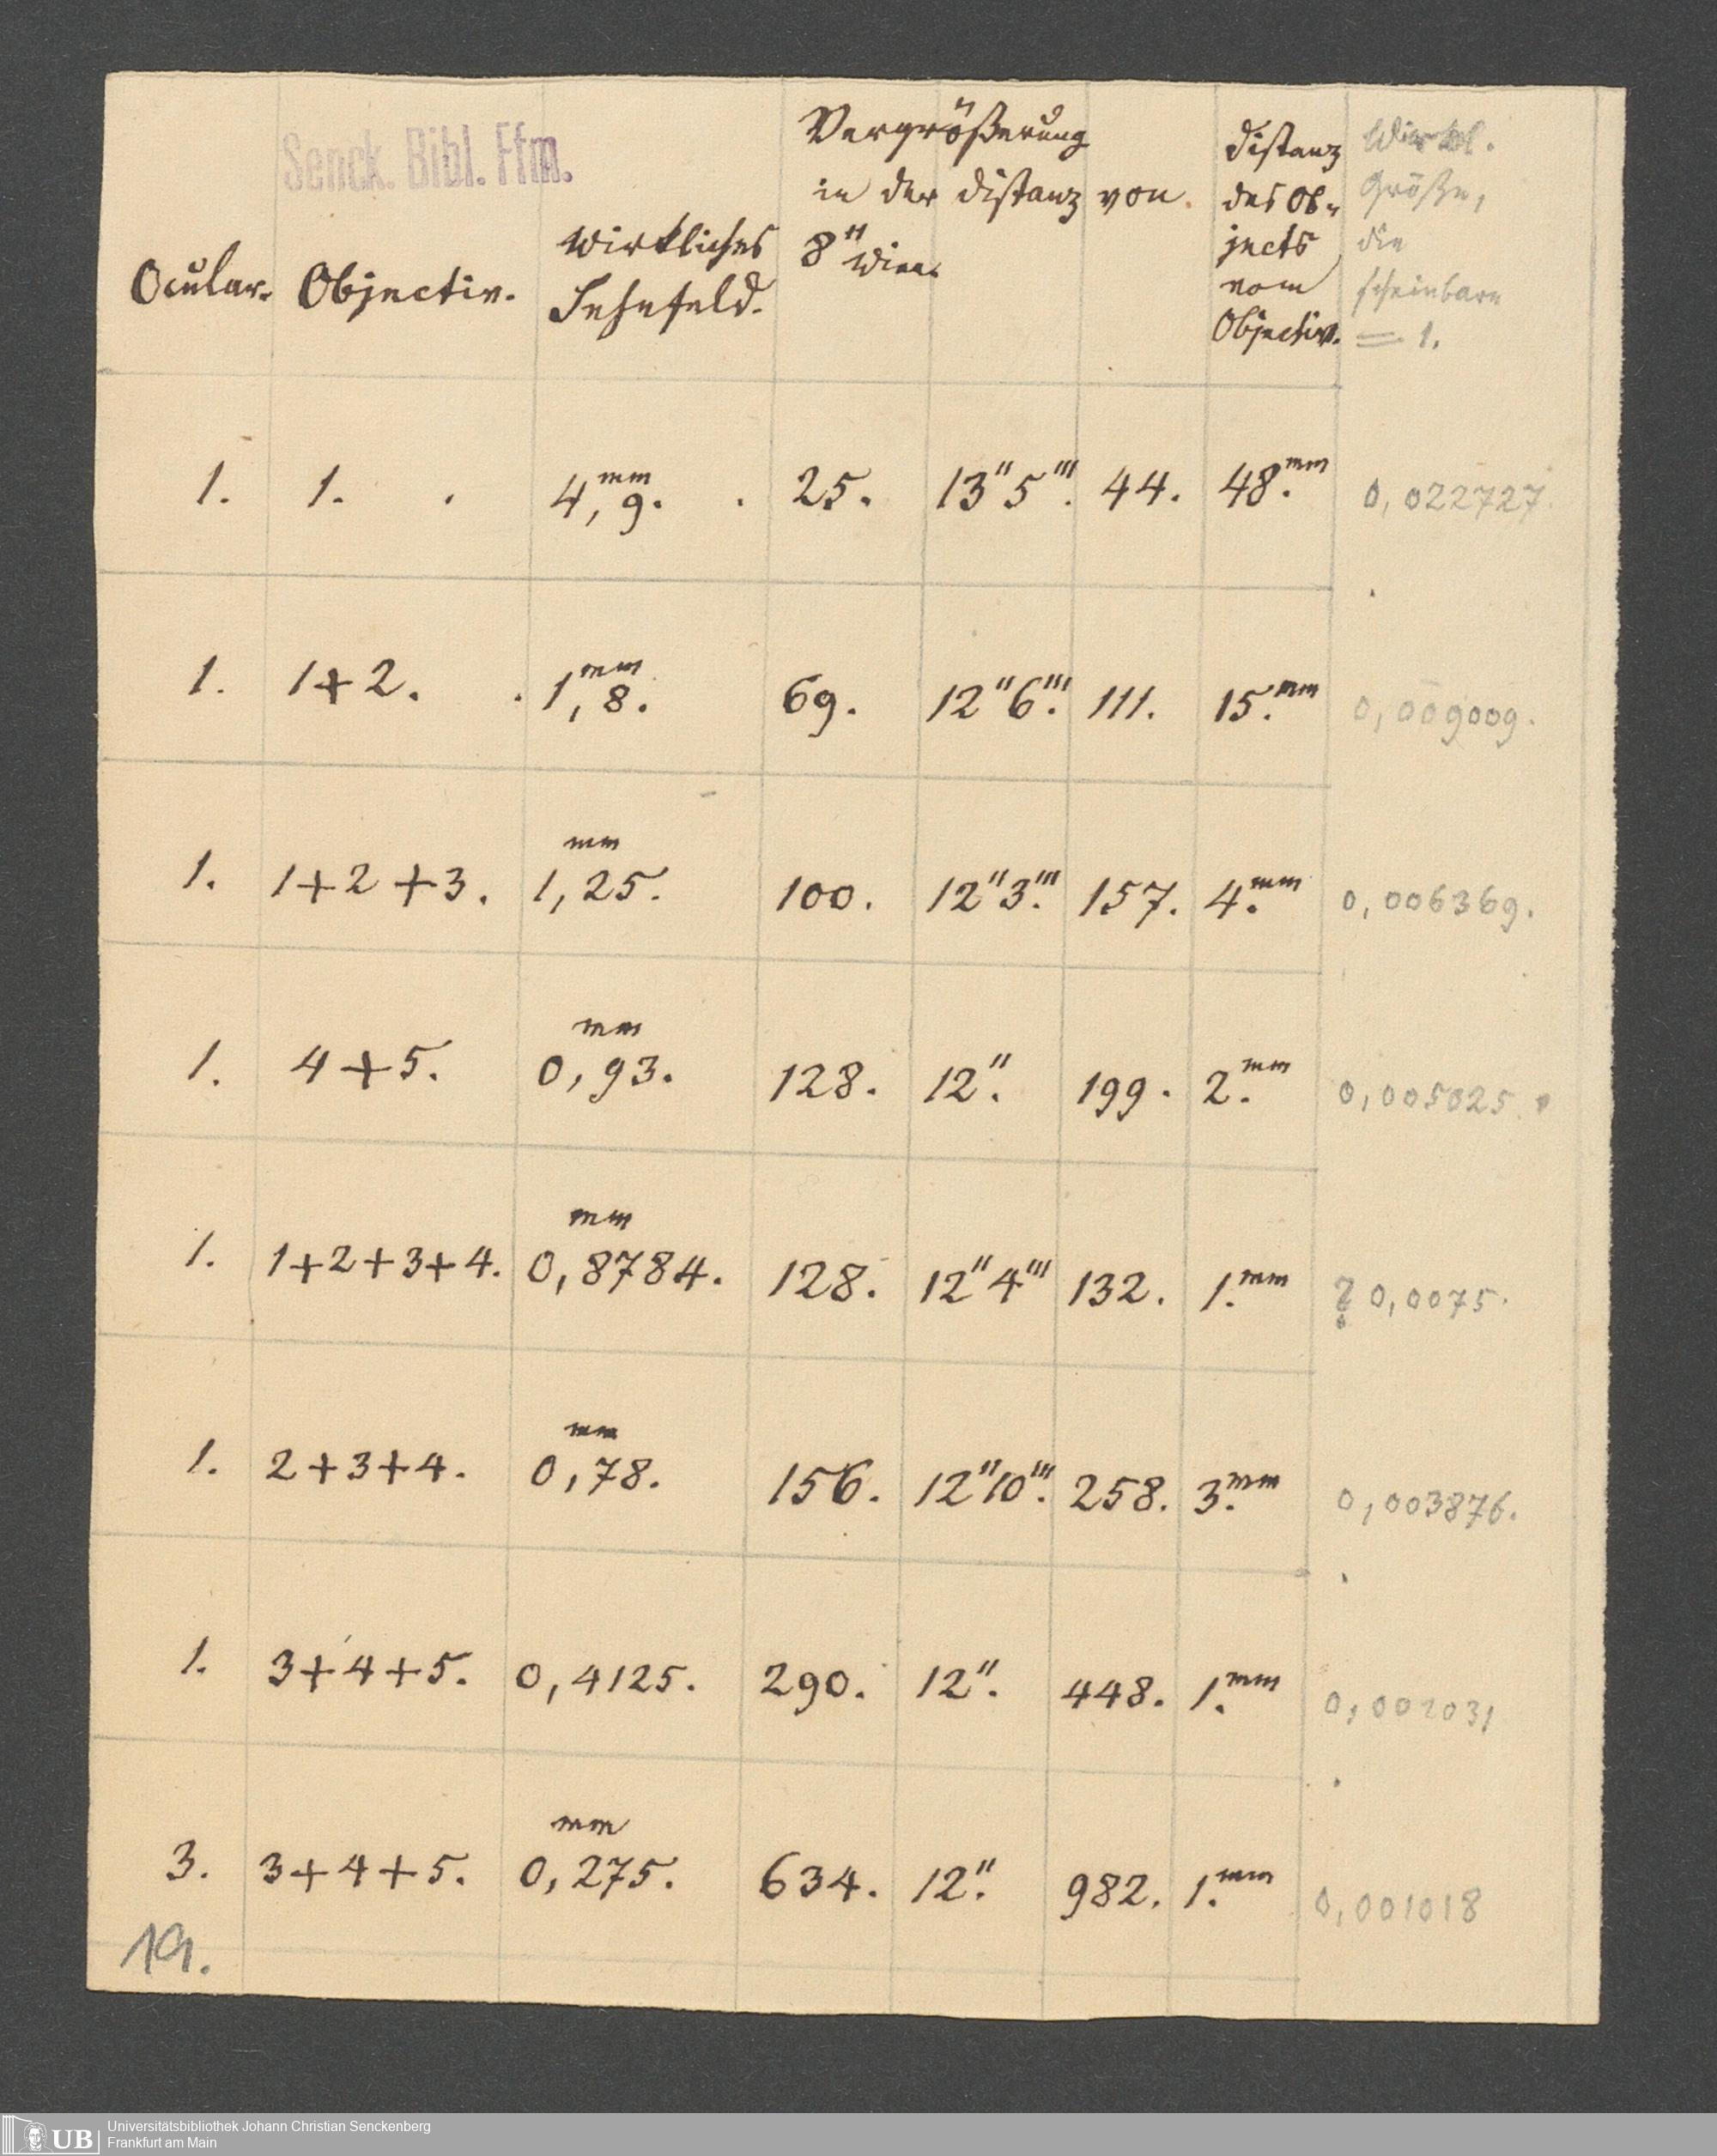 Senck. Bibl. Ffm.
Ocular. Objectiv. wirkliches Sehefeld. Vergrößerung in der Distanz von 8" Wien. Distanz des Objects vom Objectiv. Wirkl. Größe, die scheinbare = 1.
1. 1. 4,9.mm 25. 13"5'''. 44. 48.mm 0,022727.
1. 1+2. 1,8.mm 69. 12"6'''. 111. 15.mm 0,009009.
1. 1+2+3. 1,25.mm 100. 12"3'''. 157. 4.mm 0,006369.
1. 4+5. 0,93.mm 128. 12". 199. 2.mm 0,005025.
1. 1+2+3+4. 0,8784.mm 128. 12"4''' 132. 1.mm ? 0,0075.
1. 2+3+4. 0,78.mm 156. 12"10'''. 258. 3.mm 0,003876.
1. 3+4+5. 0,4125. 290. 12". 448. 1.mm 0,002031
3. 3+4+5. 0,275.mm 634. 12". 982. 1.mm 0,001018
19.
UB Universitätsbibliothek Johann Christian Senckenberg
Frankfurt am Main